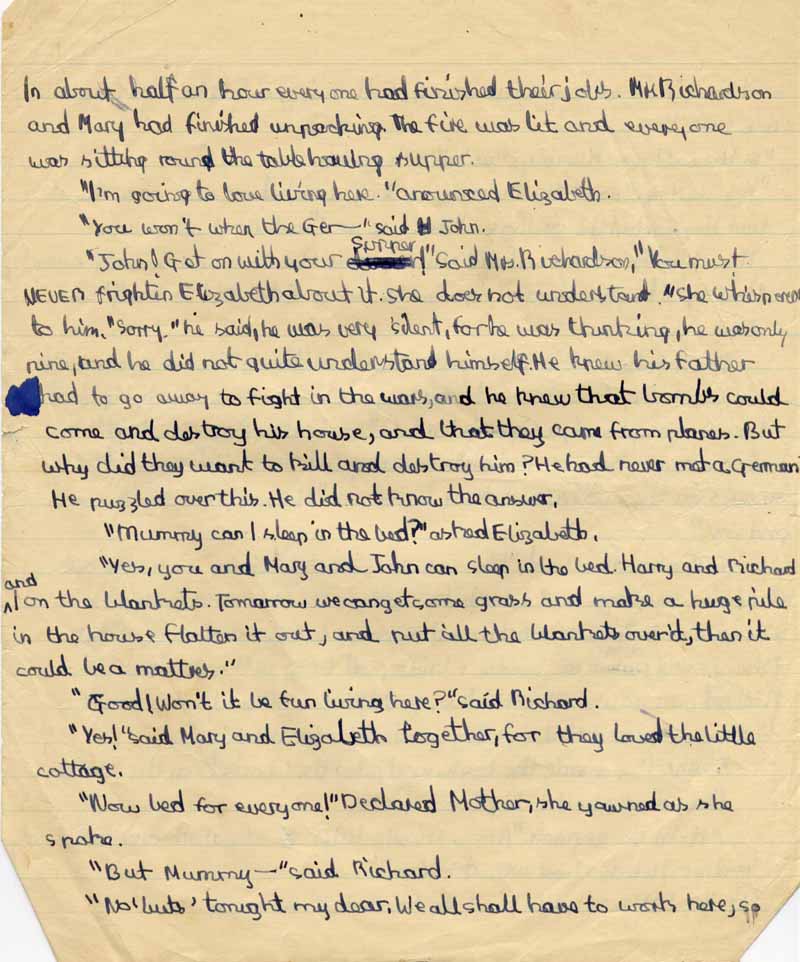 In about half an hour every one had finished their jobs. Mrs Richardson
and Mary had finished unpacking. The fire was lit and everyone
was sitting round the table having supper.
"I'm going to love living here." anounced Elizabeth.
"You won't when the Ger—" said John.
supper
"John! Get on with your !" said Mrs. Richardson, "You must
NEVER frighten Elizabeth about it. She does not understand." she whispered
to him. "Sorry." he said, he was very silent, for he was thinking, he was only
nine, and he did not quite understand himself. He knew his father
had to go away to fight in the wars, and he knew that bombs could
come and destroy his house, and that they came from planes. But
why did they want to kill and destroy him? He had never met a German
He puzzled over this. He did not know the answer.
"Mummy can I sleep in the bed?" asked Elizabeth.
"Yes, you and Mary and John can sleep in the bed. Harry and Richard
and
I on the blankets. Tomorrow we can get some grass and make a huge pile
in the house flatten it out, and put all the blankets over it, then it
could be a mattres."
"Good! Won't it be fun living here?" said Richard.
"Yes!" said Mary and Elizabeth together, for they loved the little
cottage.
"Now bed for everyone!" Declared Mother, she yawned as she
spoke.
"But Mummy—" said Richard.
"No 'buts' tonight my dear. We all shall have to work here, so